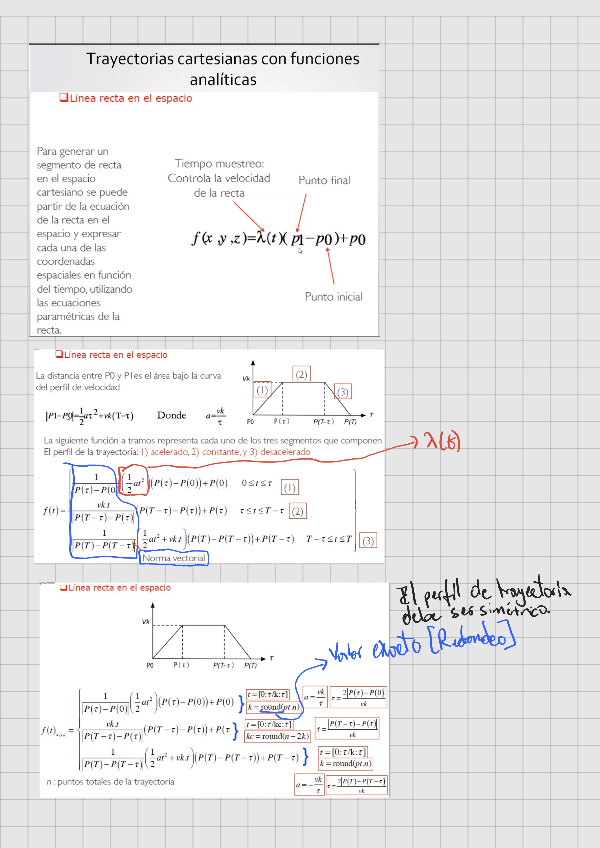 Trayectorias cartesianas con funciones
analíticas
❑Línea recta en el espacio
Para generar un
segmento de recta
en el espacio
cartesiano se puede
partir de la ecuación
de la recta en el
espacio y expresar
cada una de las
coordenadas
espaciales en función
del tiempo, utilizando
las ecuaciones
paramétricas de la
recta.
Tiempo muestreo:
Controla la velocidad
de la recta
Punto final
f(x,y,z)=λ(t)(p1−p0)+p0
Punto inicial
❑Línea recta en el espacio
La distancia entre P0 y P1es el área bajo la curva
del perfil de velocidad
|P1−P0|=1/2 aτ²+vk(T−τ) Donde a=vk/τ
Vk (1) (2) (3)
P0 P(τ) P(T-τ) P(T) T
La siguiente función a tramos representa cada uno de los tres segmentos que componen
El perfil de la trayectoria: 1) acelerado, 2) constante, y 3) desacelerado
λ(t)
1/|P(τ)−P(0)| (1/2 at²)(P(τ)−P(0))+P(0) 0≤t≤τ (1)
f(t)= vk.t/|P(T−τ)−P(τ)| (P(T−τ)−P(τ))+P(τ) τ≤t≤T−τ (2)
1/|P(T)−P(T−τ)| (1/2 at²+vk.t)(P(T)−P(T−τ))+P(T−τ) T−τ≤t≤T (3)
Norma vectorial
❑Línea recta en el espacio
El perfil de trayectoria
debe ser simétrico.
Vk
P0 P(τ) P(T-τ) P(T) T
exacto [Redondeo]
1/|P(τ)−P(0)| (1/2 at²)(P(τ)−P(0))+P(0) t=[0:τ/k:τ] k=round(pt.n) a=vk/τ τ=2|P(τ)−P(0)|/vk
f(t)= vk.t/|P(T−τ)−P(τ)| (P(T−τ)−P(τ))+P(τ t=[0:τ/kc:τ] kc=round(n−2k) τ=|P(T−τ)−P(τ)|/vk
1/|P(T)−P(T−τ)| (1/2 at²+vk.t)(P(T)−P(T−τ))+P(T−τ) t=[0:τ/k:τ] k=round(pt.n)
n : puntos totales de la trayectoria a=−vk/τ τ=2|P(T)−P(T−τ)|/vk